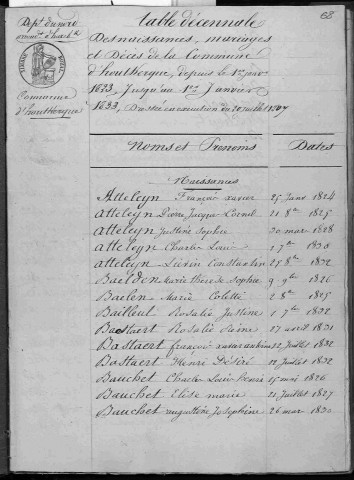 68
Dept du nord
Table décennale
Des naissances, mariages
et Décès de la Commune
d'houtkerque, depuis le 1er janv
1823, Jusqu'au 1er Janvier
1833, Dressée en exécution du 20 juillet 1807
TIMBRE ROYAL
Commune
d'houtkerque
Noms et Prénoms Dates
Naissances
Atteleyn François xavier 25 Janv 1824
atteleyn Pierre Jacque Cornil 21 8bre 1825
atteleyn Justine Sophie 30 mar 1828
atteleyn Charles Louis 1 7bre 1830
atteleyn Livin Constantin 25 8bre 1832
Baeldon Marie thérèse Sophie 9 9bre 1826
Baelen Marie Colette 2 8bre 1825
Bailleul Rosalie Justine 1 7bre 1832
Bastaert Rosalie Reine 27 avril 1831
Bastaert françois 22 Juillet 1832
Bastaert Henri Désiré 12 Juillet 1832
Bauchet Charles Louis 15 mai 1826
Bauchet Elise marie 21 Juillet 1827
Bauchet augustine Josephine 26 mar 1830